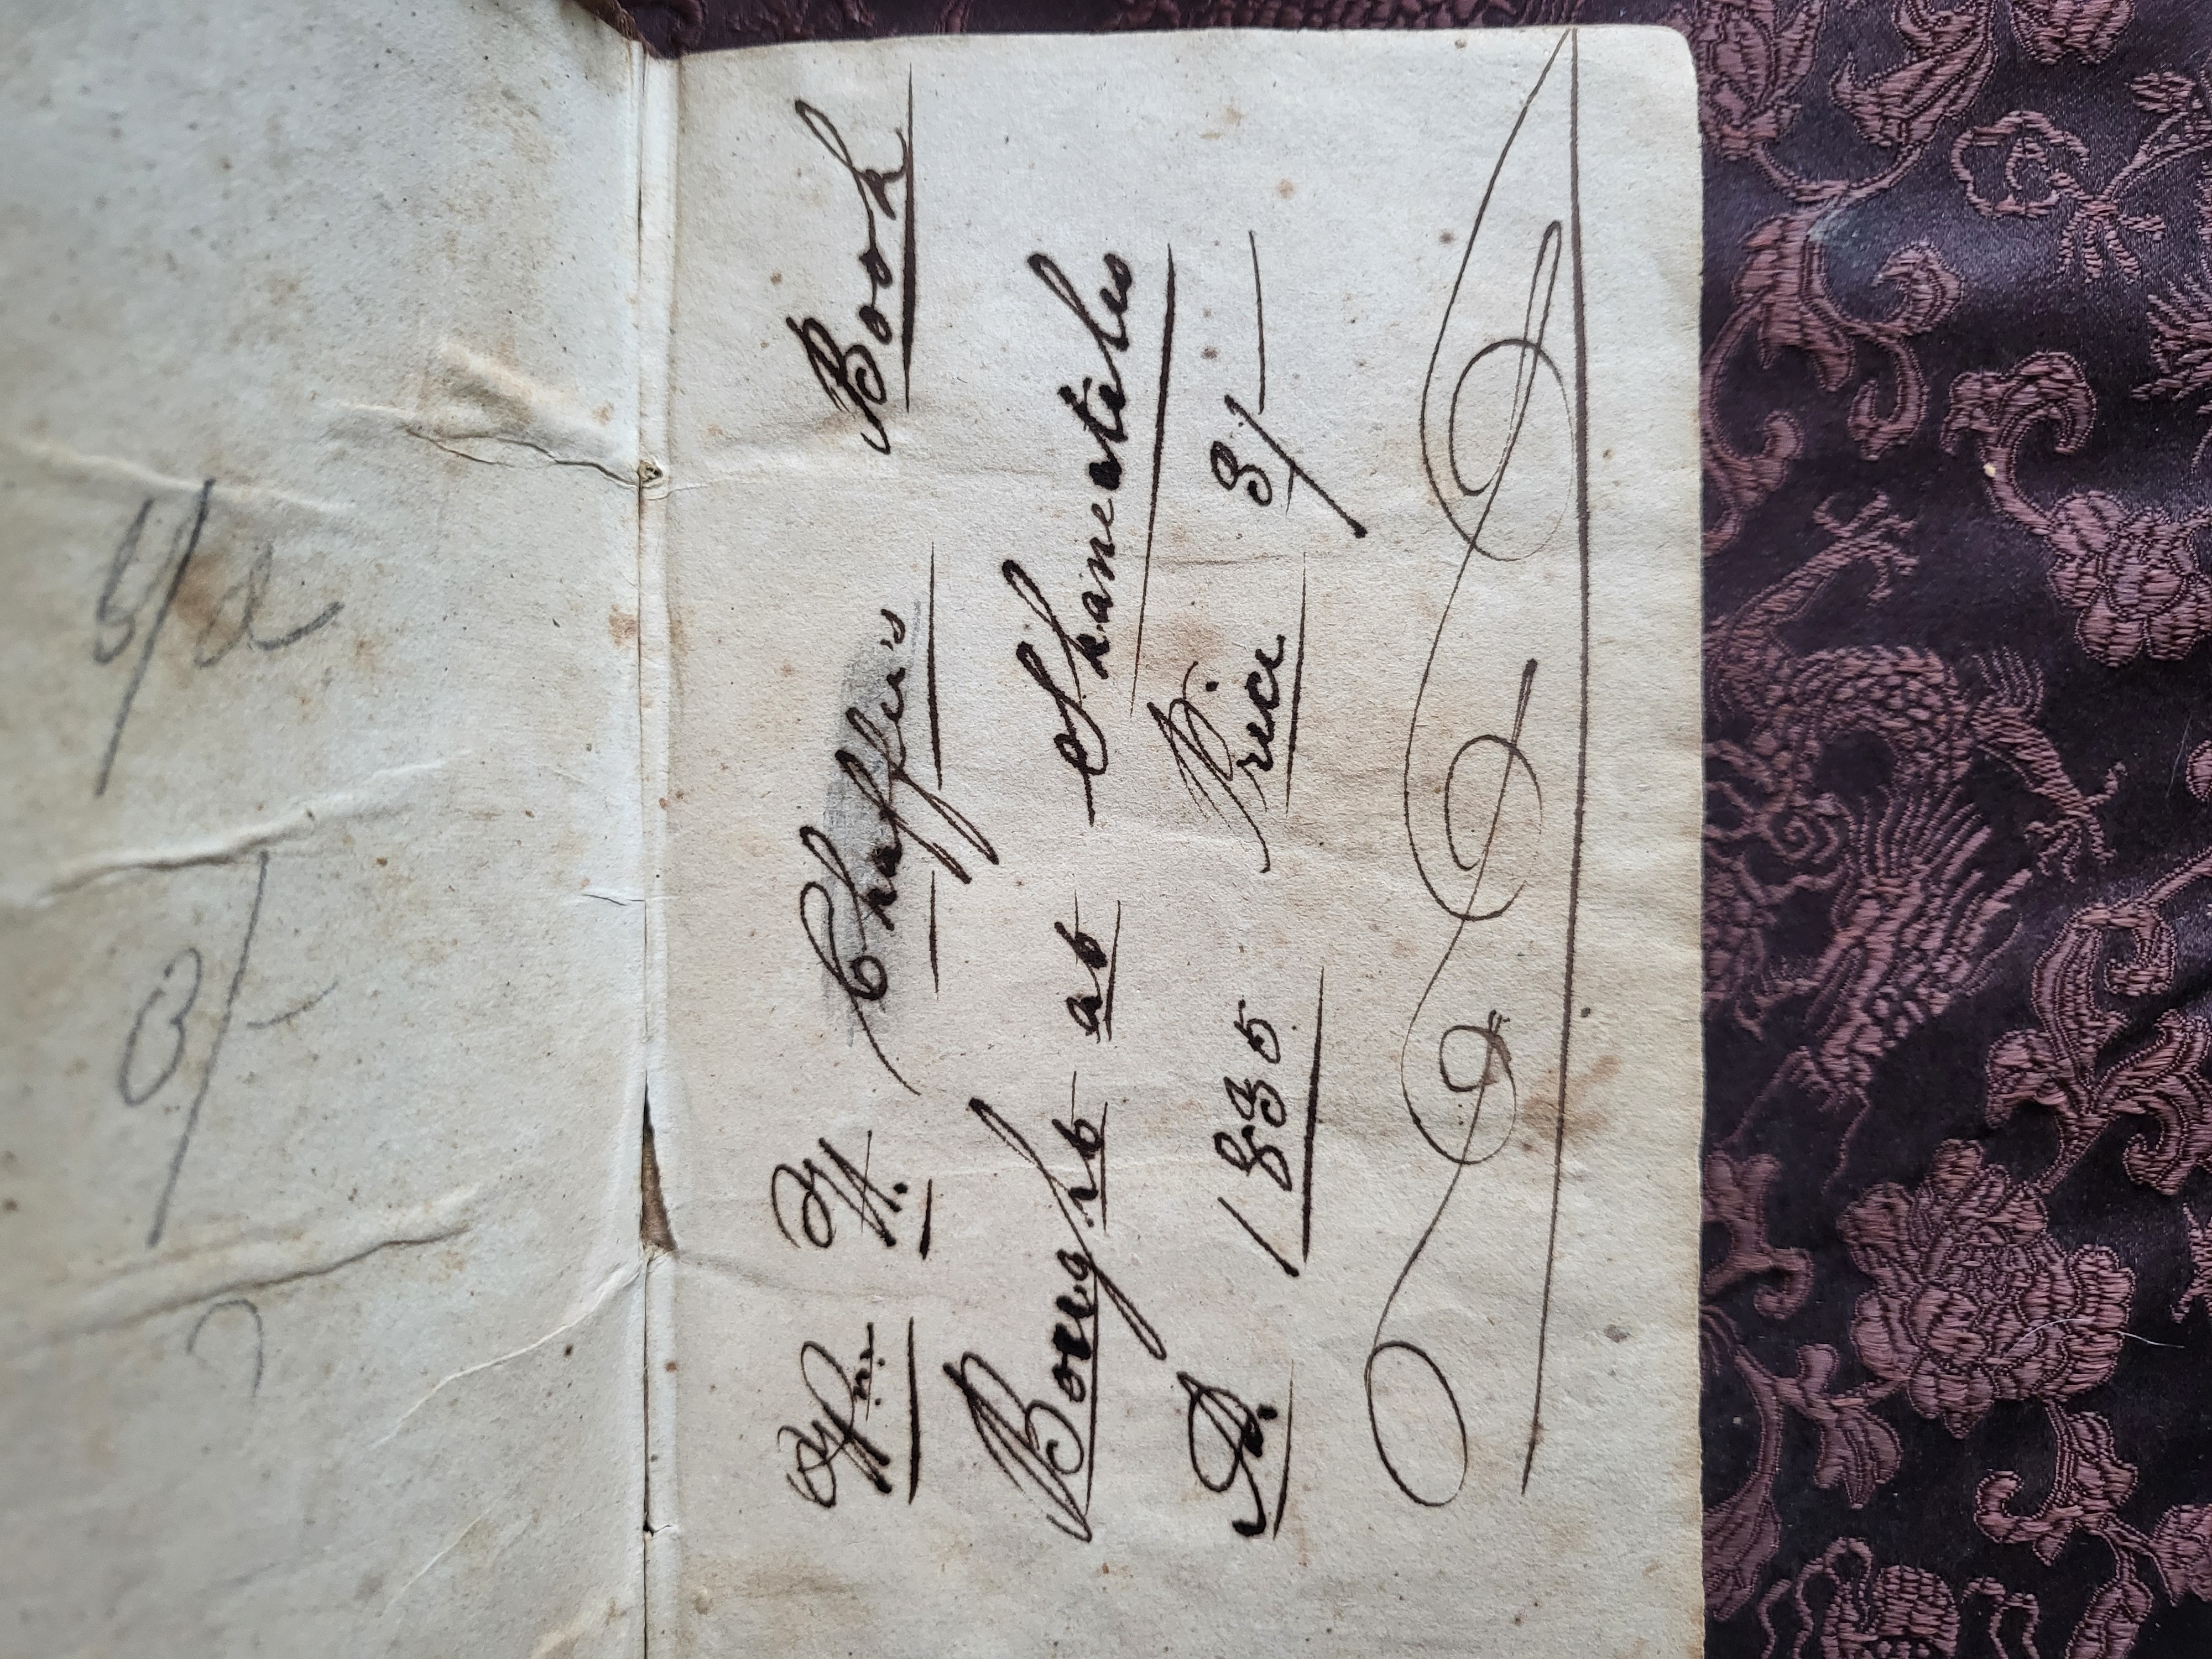 Wm. H. Chaffee's Book
Bought at Skaneateles
A. 1835 Price 3/
3/-
6/